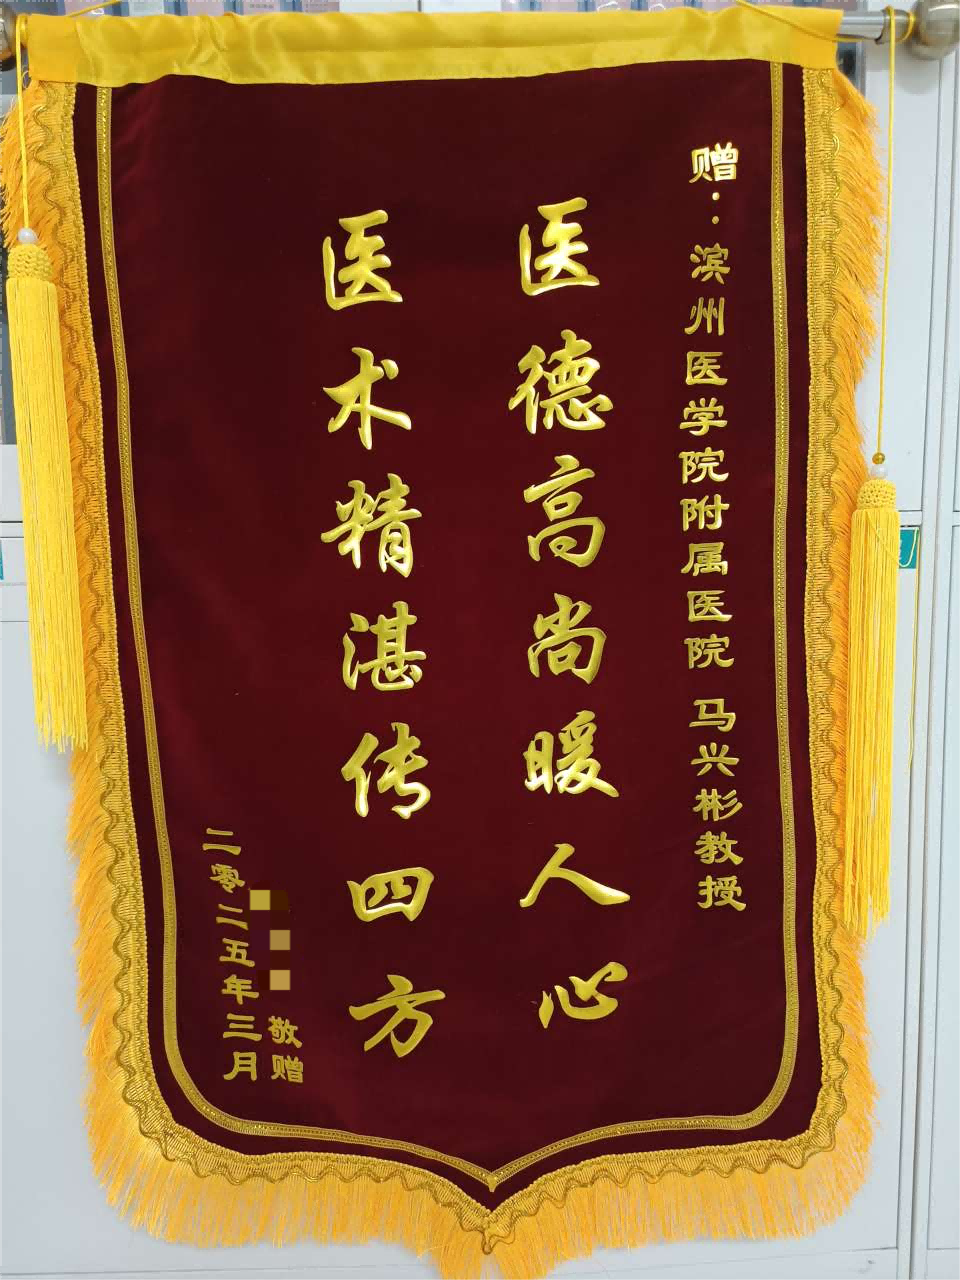 赠：滨州医学院附属医院 马兴彬教授
医德高尚暖人心
医术精湛传四方
敬赠
二零二五年三月